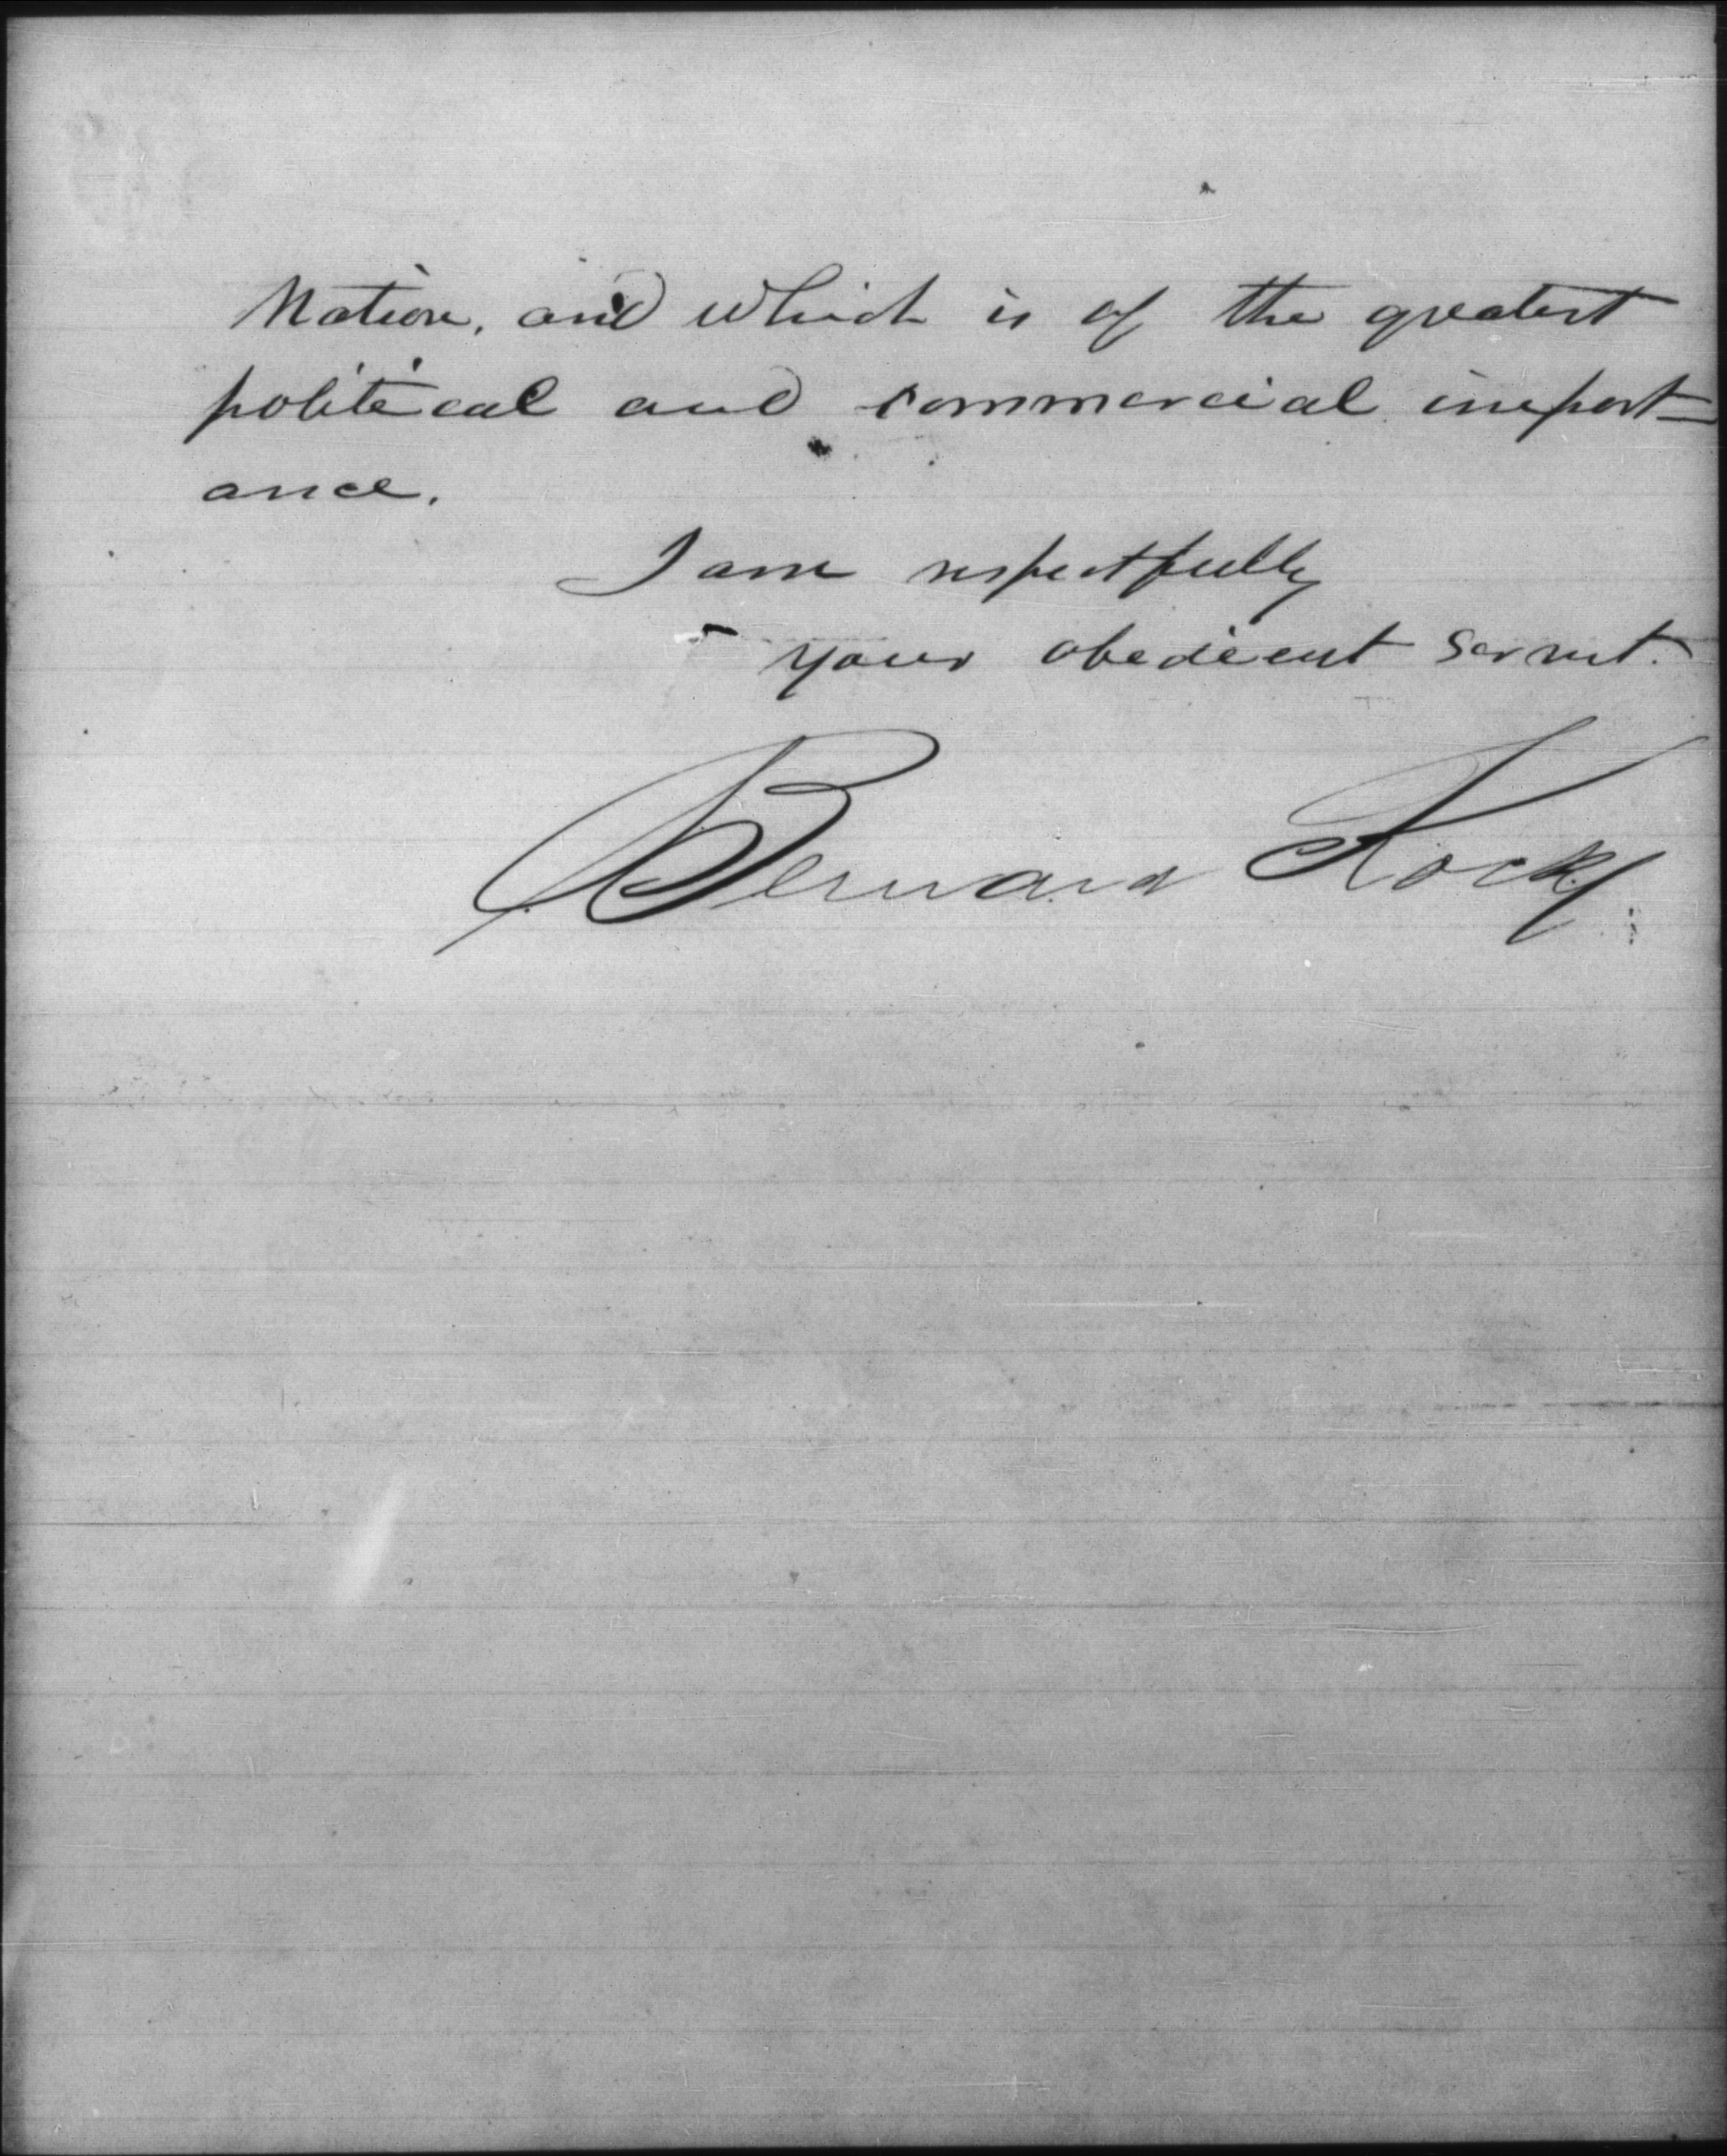 Nation, and which is of the greatest
political and commercial import=
ance.
I am respectfully
your obedient servnt.
Bernard Kock